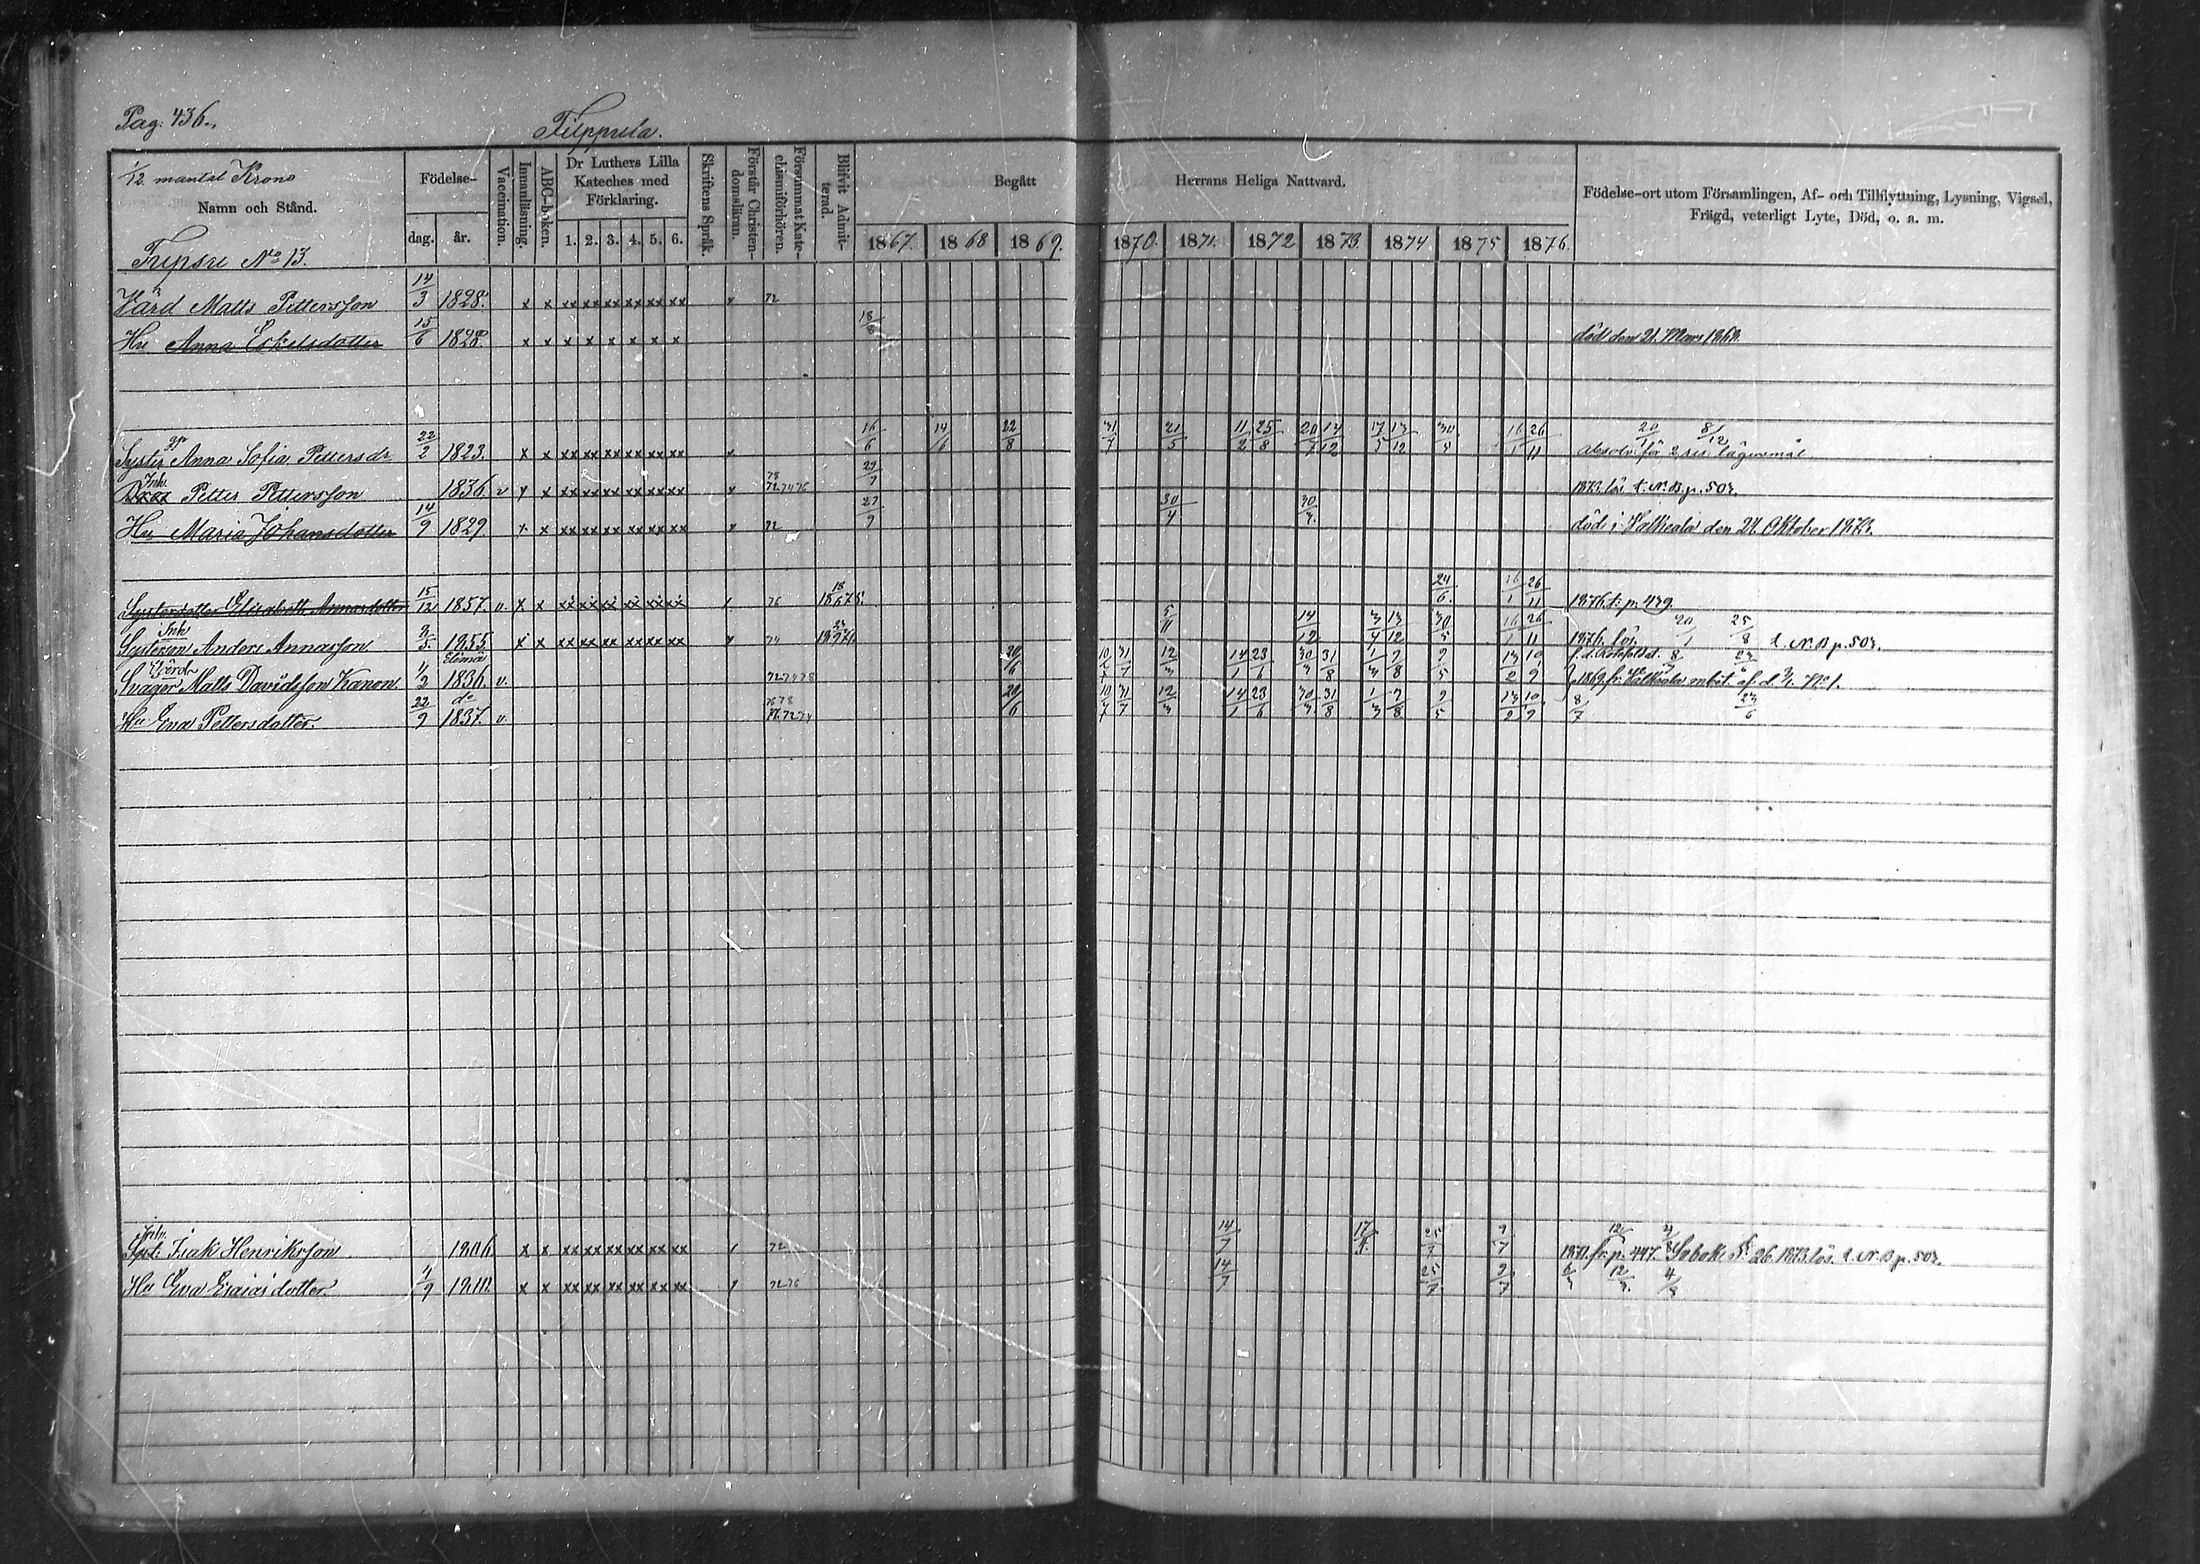 Pag. 436.
Filppula.
1/12 mantal Krono
Namn och Stånd.
Födelse-
dag. år.
Vaccination.
Innanläsning.
ABC-boken.
Dr Luthers Lilla Kateches med Förklaring.
1. 2. 3. 4. 5. 6.
Skriftens Språk.
Förstår Christendomsläran.
Försummat Katechismiförhören.
Blifvit Admitterad.
Begått Herrans Heliga Nattvard.
1867. 1868 1869. 1870. 1871. 1872 1873 1874 1875 1876.
Födelse-ort utom Församlingen, Af- och Tillflyttning, Lysning, Vigsel,
Frägd, veterligt Lyte, Död, o. a. m.
No 13.
Värd Matts Pettersson 14/3 1828. x x xx xx xx xx xx xx x 72
Hu Anna Eskelsdotter 15/6 1828. x x x x x x x x 18/8 död den 21. Mars 1868.
Syster Anna Sofia Pettersdr 22/2 1823. x x xx xx xx xx xx xx x 16/6 14/6 22/8 31/7 21/5 11/2 25/8 20/7 14/12 17/5 13/12 30/5 16/1 26/11 20/1 8/12 absolv. för 2 res. lägersmål
Inh. Petter Pettersson 1836. v x x xx xx xx xx xx xx x 73 72 74 76 29/7 1873. lös t. N. B. p. 502.
Hu Maria Johansdotter 14/9 1829. x x xx xx xx xx xx xx x 72 27/9 30/4 30/3. död i Valkeala den 21. Oktober 1873.
Systerdotter Elisabeth Annasdotter 15/12 1857. v. x x xx xx xx xx xx xx 76 18/6 1875. 24/6. 16/1 26/11 1876 t. p. 439.
Inh Systerson Anders Annasson 3/5. 1855. x x xx xx xx xx xx xx x 74 5/11 14/12 3/4 13/12 30/5 16/1 26/11 1876. lös. 20/1 25/8 t. N. B p. 502.
Svåger Matts Davidsson Kanon Elimä 4/3 1836. v. 72 74 78 20/6 10/7 31/7 12/3 14/1 23/6 30/3 31/8 1/3 7/8 9/5 13/2 10/9 1869. fr. Valkeala
Hu Eva Pettersdotter. 22/9 do 1837. v. 76 78 72 74 20/6 10/7 31/7 12/3 14/1 23/6 30/3 31/8 1/3 7/8 9/5 13/2 10/9 8/7 23/6
Isak Henriksson 1806. x x xx xx xx xx xx xx 72 14/7 25/7 9/7 1871. fr. p. 447. 1873. lös. t. N. B p. 502.
Hu Eva Esaiasdotter 4/9 1810. x x xx xx xx xx xx xx 72 76 14/7 25/7 9/7 6/3 12/3. 4/8